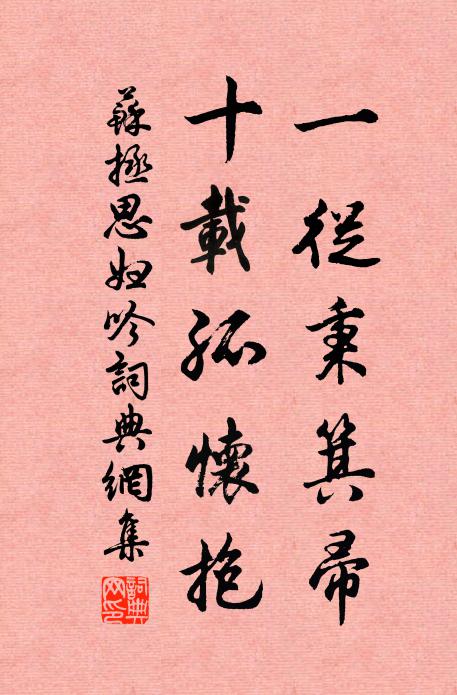 一從秉箕帚
十載孤懷抱
蘇拯思婦吟詞典網集
詞典网印